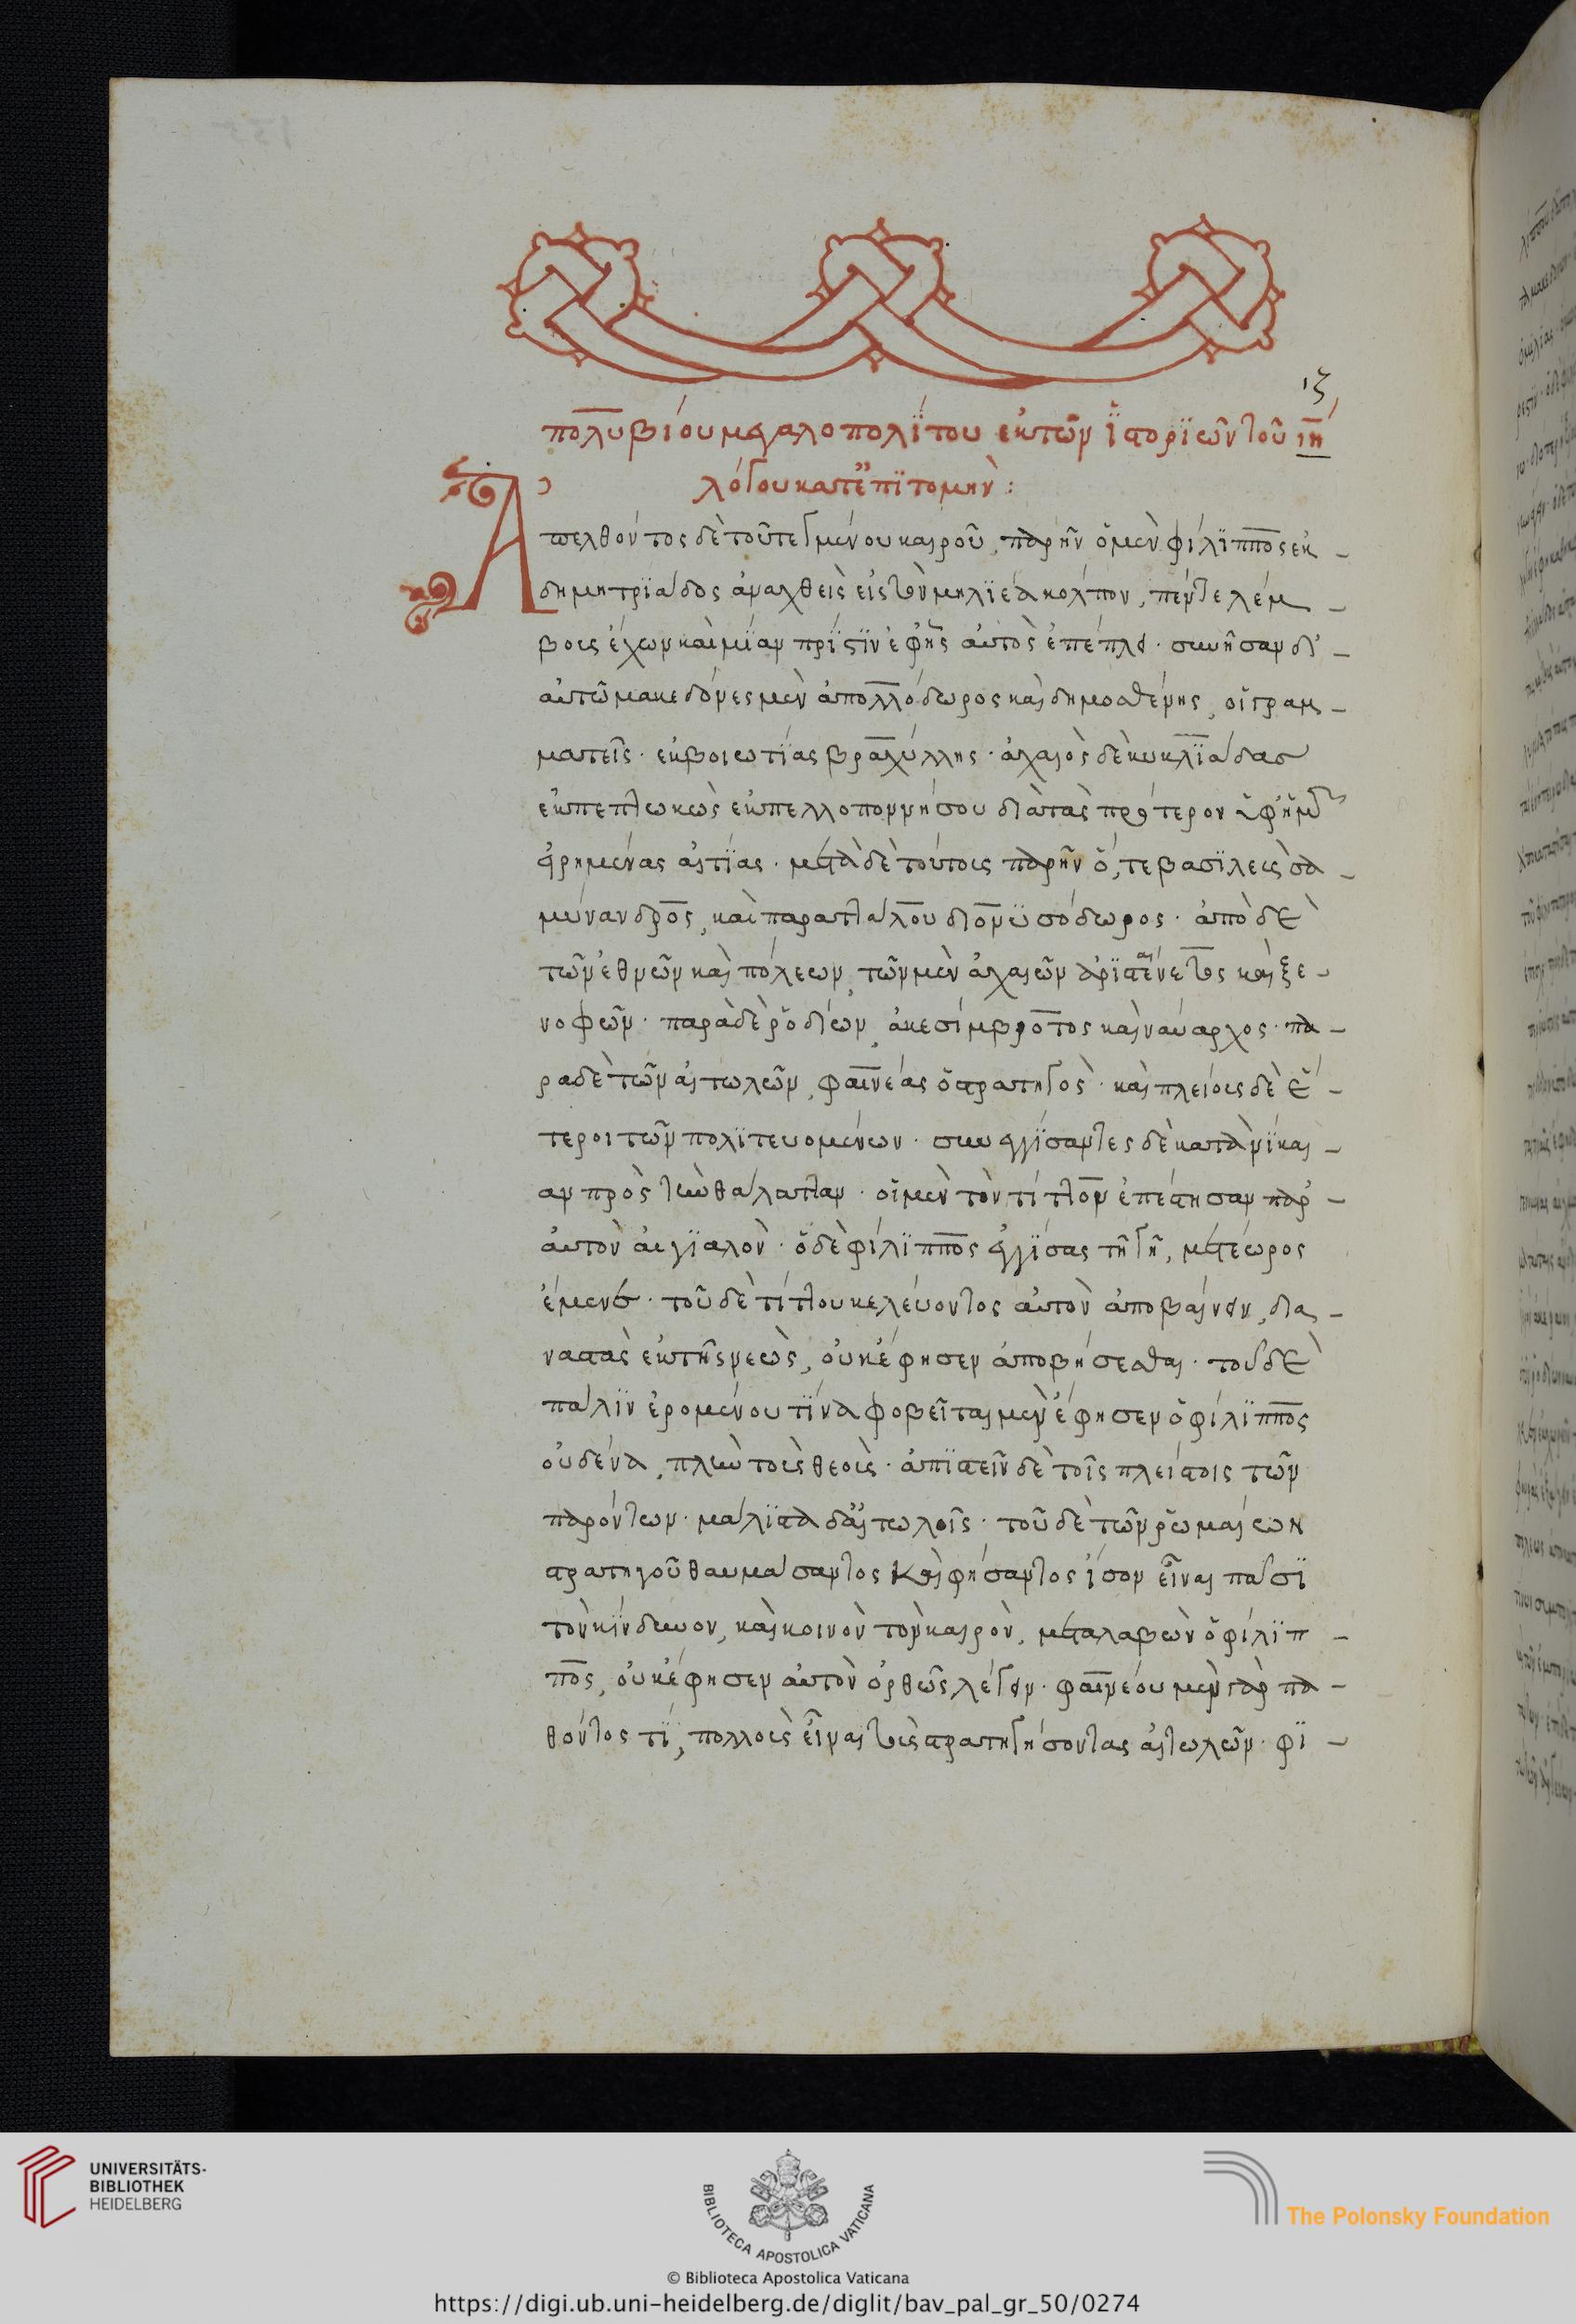 ιζ
πολυβίου μεγαλοπολΐτου ἐκ τῶν ϊστορϊῶν τοῦ ιη
λόγου κατ' ἐπϊτομὴν:
Ἀπελθόντος δὲ τοῦ τεγμένου καιροῦ, παρῆν ὁ μὲν φίλϊππος ἐκ
δημητρϊάδος ἀναχθεὶς εἰς τὸν μηλϊέα κόλπον, πέντε λέμ
βους ἔχων καὶ μΐαν πρΐστϊν ἐφ' ἧς αὐτὸς ἐπέπλει· συνῆσαν δ'
αὐτῶ μακεδόνες μὲν ἀπολλόδωρος καὶ δημοσθένης, οἱ γραμ
ματεῖς· ἐκ βοιωτίας βραχύλλης· ἀχαιὸς δὲ κυκλϊάδας
ἐκπεπτωκὼς ἐκ πελλοποννήσου διὰ τὰς πρότερον ὑφ' ἡμῶν
εἰρημένας αἰτΐας· μετὰ δὲ τούτοις παρῆν ὅ, τε βασϊλεὺς ἀ
μύνανδρος, καὶ παρ' ἀττάλου διονϋσόδωρος· ἀπὸ δὲ
τῶν ἐθνῶν καὶ πόλεων, τῶν μὲν ἀχαιῶν ἀρϊσταίνετος καὶ ξε
νοφῶν· παρὰ δὲ ῥοδίων, ἀκεσίμβροτος καὶ ναύαρχος· πα
ρὰ δὲ τῶν αἰτωλῶν, φαινέας ὁ στρατηγὸς· καὶ πλείους δὲ ἕ
τεροι τῶν πολϊτευομένων· συνεγγΐσαντες δὲ κατὰ νΐκαι
αν πρὸς τὴν θάλατταν· οἱ μὲν τὸν τίτον ἐπέστησαν παρ'
αὐτὸν αἰγϊαλὸν· ὁ δὲ φίλϊππος ἐγγΐσας τῆ γῆ, μετέωρος
ἔμενε· τοῦ δὲ τίτου κελεύοντος αὐτὸν ἀποβαίνειν, δια
ναστὰς ἐκ τῆς νεὼς, οὐκ ἔφησεν ἀποβήσεσθαι· τοῦ δὲ
πάλϊν ἐρομένου τΐνα φοβεῖται μὲν ἔφησεν ὁ φίλϊππος
οὐδένα, πλὴν τοὺς θεούς· ἀπϊστεῖν δὲ τοῖς πλείστοις τῶν
παρόντων· μάλϊστα δ' αἰτωλοῖς· τοῦ δὲ τῶν ῥωμαίων
στρατηγοῦ θαυμάσαντος καὶ φήσαντος ἴσον εἶναι πᾶσϊ
τὸν κΐνδυνον, καὶ κοινὸν τὸν καιρὸν, μεταλαβὼν ὁ φίλϊπ
πος, οὐκ ἔφησεν αὐτὸν ὀρθῶς λέγειν· φαινέου μὲν γὰρ πα
θόντος τΐ, πολλοὺς εἶναι τοὺς στρατηγήσοντας αἰτωλῶν· φϊ
UNIVERSITÄTS-
BIBLIOTHEK
HEIDELBERG
BIBLIOTECA APOSTOLICA VATICANA
The Polonsky Foundation
© Biblioteca Apostolica Vaticana
https://digi.ub.uni-heidelberg.de/diglit/bav_pal_gr_50/0274